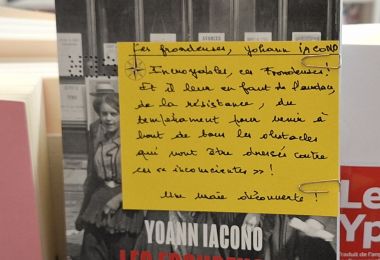 Les frondeuses, Yohann IACONO
Incroyables, ces Frondeuses!
Et il leur en faut de l'audace,
de la résistance, du
tempérament pour venir à
bout de tous les obstacles
qui vont être dressés contre
ces « inconscientes » !
Une vraie découverte !
YOANN IACONO
LES FRONDEUSES
Le
Yp
Traduit de l'an